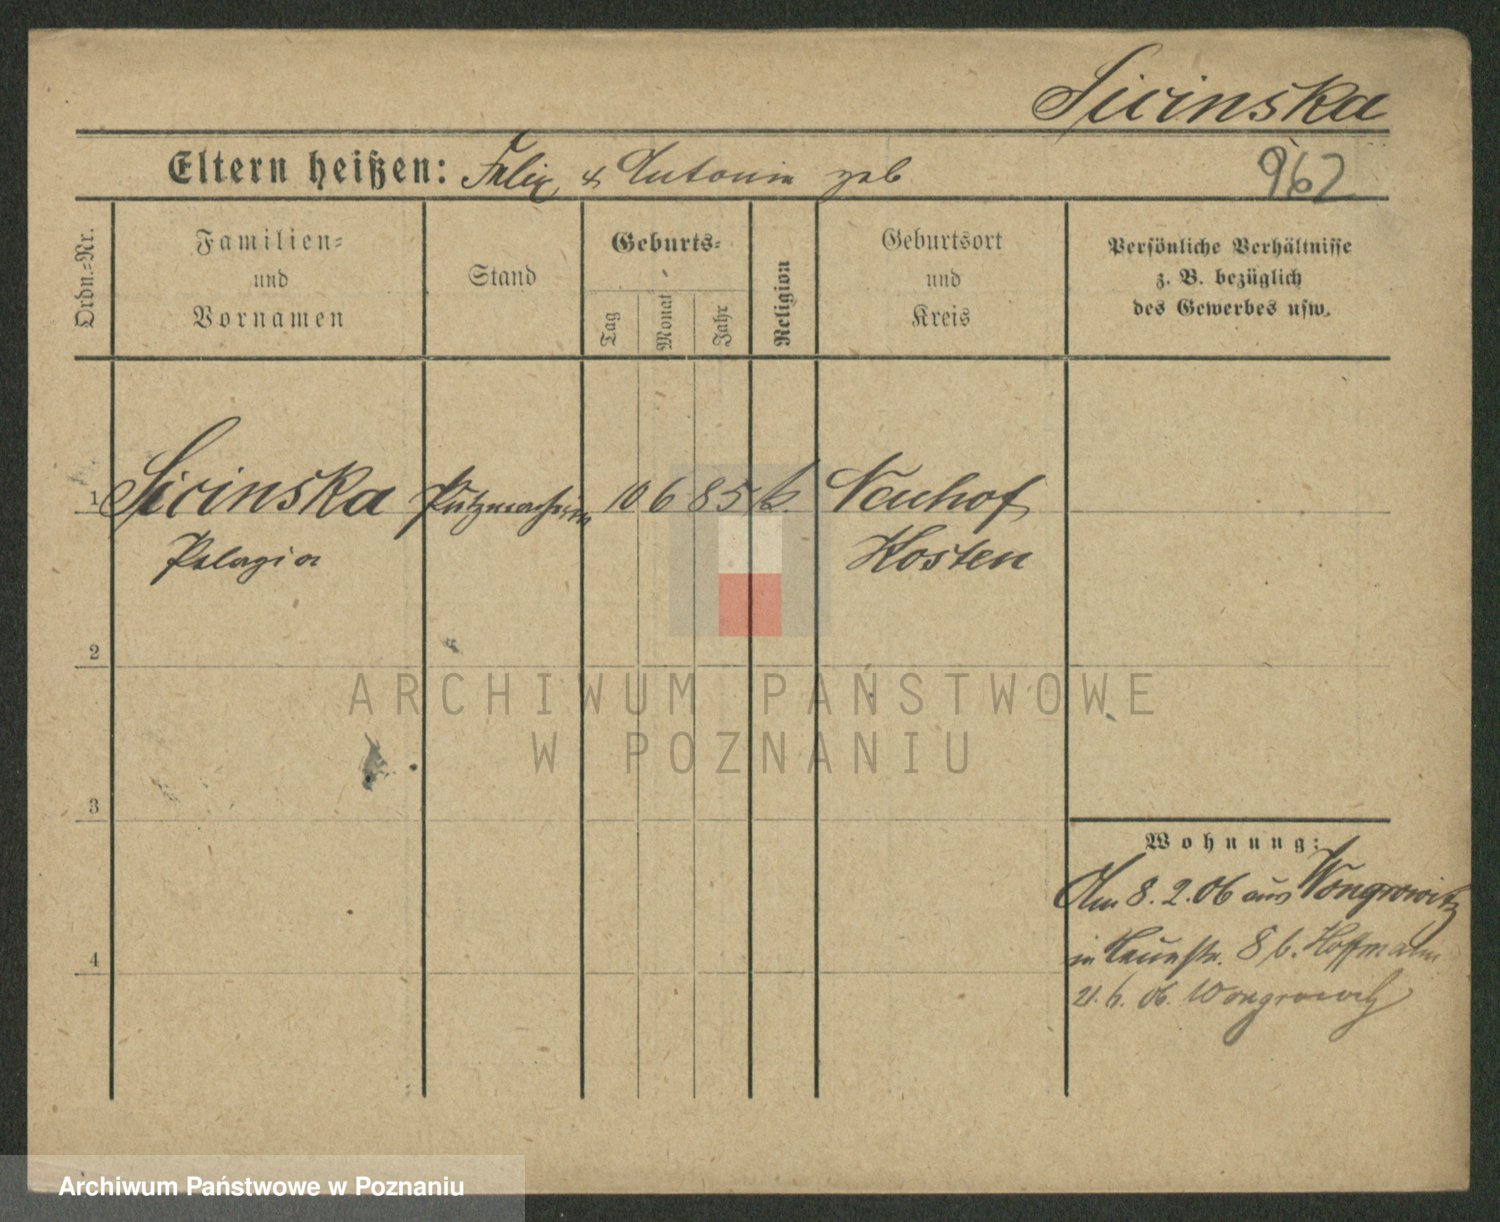 Sicinska
Eltern heißen: Felix & Antonin geb
962
Ordn.=Nr.
Familien=
und
Vornamen
Stand
Geburts=
Tag
Monat
Jahr
Religion
Geburtsort
und
Kreis
Persönliche Verhältnisse
z. B. bezüglich
des Gewerbes usw.
1 Sicinska Putzmacherin 10 6 85 k. Neuhof
Pelagia Kosten
2
ARCHIWUM PAŃSTWOWE
W POZNANIU
3
Wohnung:
Am 8. 2. 06 aus Wongrowitz
in 8 b. Hoffmann
4
21. 6. 06. Wongrowitz
Archiwum Państwowe w Poznaniu